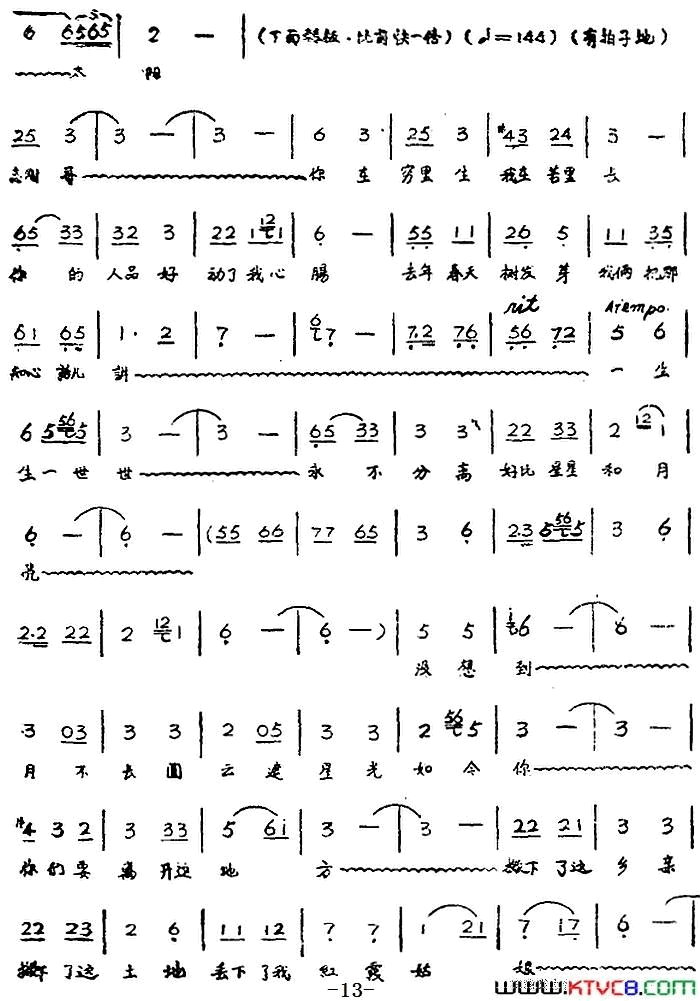 6 6565 | 2 — | (下面转板·比前快一倍) (♩=144) (有拍子地)
太 阳
25 3 | 3 — | 3 — | 6 3· | 25 3 | #43 24 | 3 — |
志刚哥 你 在 穷里 生 我在 苦里 长
65 33 | 32 3 | 22 1 1 | 6 — | 55 11 | 26 5 | 11 35 |
你 的 人品 好 动了 我心 肠 去年 春天 树发 芽 我俩 把那
rit Atempo.
61 65 | 1· 2 | 7 — | 7 — | 7.2 76 | 56 72 | 5 6 |
知心 话儿 讲 一 生
6 5 5 | 3 — | 3 — | 65 33 | 3 3 | 22 33 | 2 1 |
生 一 世 世 永 不 分 离 好比 星星 和 月
6 — | 6 — | (55 66 | 77 65 | 3 6 | 2.3 5 5 | 3 6 |
亮
2.2 22 | 2 1 | 6 — | 6 —) | 5 5 | 6 — | 6 — |
没 想 到
3 03 | 3 3 | 2 05 | 3 3 | 2 5 | 3 — | 3 — |
月 不 长 圆 云 遮 星 光 如 今 你
#4 3 2 | 3 33 | 5 6i | 3 — | 3 — | 22 21 | 3 3 |
你们 要 离 开这 地 方 撇下 了这 乡 亲
22 23 | 2 6 | 11 12 | 7 7 | 1 21 | 7 17 | 6 — |
撇下 了这 土 地 丢下 了我 红 霞 姑 娘
-13-
WWW.KTVC8.COM